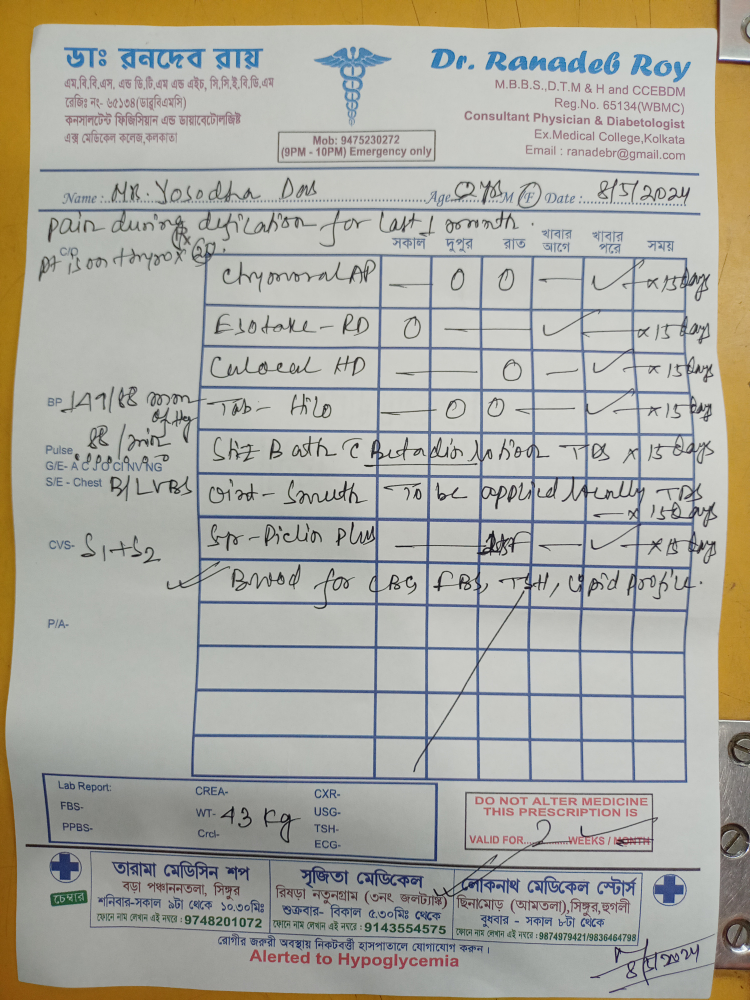 ডাঃ রনদেব রায়
এম.বি.বি.এস. এন্ড ডি.টি.এম এন্ড এইচ, সি.সি.ই.বি.ডি.এম
রেজিঃ নং- ৬৫১৩৪(ডাব্লুবিএমসি)
কনসালটেন্ট ফিজিসিয়ান এন্ড ডায়াবেটোলজিষ্ট
এক্স মেডিকেল কলেজ,কলকাতা
Mob: 9475230272
(9PM - 10PM) Emergency only
Dr. Ranadeb Roy
M.B.B.S.,D.T.M & H and CCEBDM
Reg.No. 65134(WBMC)
Consultant Physician & Diabetologist
Ex.Medical College,Kolkata
Email : ranadebr@gmail.com
Name: MR. Yosodha Das Age M F Date: 8/5/2024
pain during defication for last 1 month.
C/O
pt is on thyrox
সকাল দুপুর রাত খাবার আগে খাবার পরে সময়
Chymoral AP — O O — ✓ — x 15 days
Esotake - RD O — — ✓ — x 15 days
Calocal HD — — O — ✓ — x 15 days
BP 149/88 mm of Hg
Tab - Hilo — O O — ✓ — x 15 days
Pulse 88 /min
G/E- A C J O CI NV NG
Sitz Bath C Betadin lotion TDS x 15 days
S/E - Chest B/L VBS
Oint - Smuth To be applied locally TDS
— x 15 days
CVS- S1 + S2
Syp - Piclin Plus — — — ✓ — x 15 days
✓ Blood for CBC, FBS, TSH, Lipid Profile.
P/A-
Lab Report:
FBS-
PPBS-
CREA-
WT- 43 kg
Crcl-
CXR-
USG-
TSH-
ECG-
DO NOT ALTER MEDICINE
THIS PRESCRIPTION IS
VALID FOR 2 WEEKS / MONTH
চেম্বার
তারামা মেডিসিন শপ
বড়া পঞ্চাননতলা, সিঙ্গুর
শনিবার-সকাল ৯টা থেকে ১০.৩০মিঃ
ফোনে নাম লেখান এই নম্বরে : 9748201072
সৃজিতা মেডিকেল
রিষড়া নতুনগ্রাম (৩নং জলট্যাঙ্ক)
শুক্রবার- বিকাল ৫.৩০মিঃ থেকে
ফোনে নাম লেখান এই নম্বরে : 9143554575
লোকনাথ মেডিকেল স্টোর্স
ছিনামোড় (আমতলা),সিঙ্গুর,হুগলী
বুধবার - সকাল ৮টা থেকে
ফোনে নাম লেখান এই নম্বরে : 9874979421/9836464798
রোগীর জরুরী অবস্থায় নিকটবর্তী হাসপাতালে যোগাযোগ করুন।
Alerted to Hypoglycemia
8/5/2024